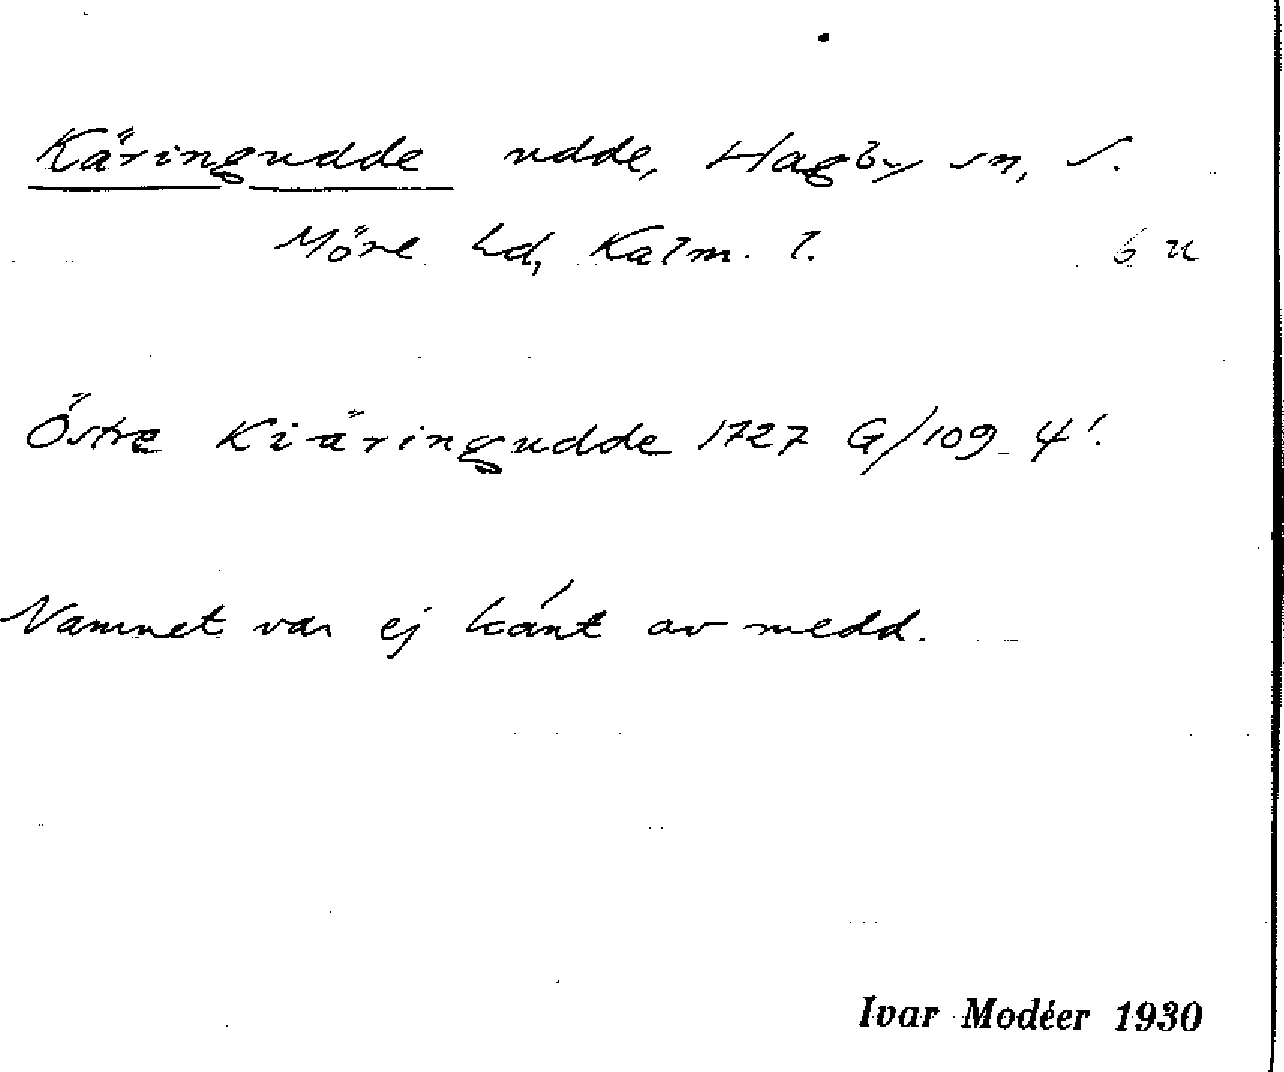 Käringudde udde, Hagby sn, S.
Möre hd, Kalm. l. 6 u
Östre Kiäringudde 1727 G/109 4!.
Namnet var ej känt av medd.
Ivar Modéer 1930